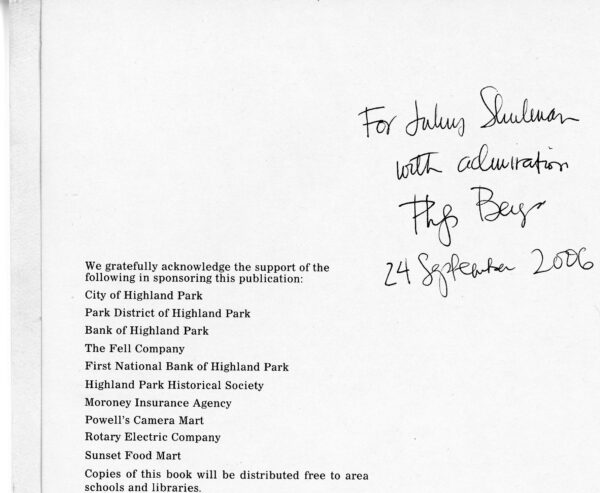 For Julius Shulman
with admiration
24 September 2006
We gratefully acknowledge the support of the
following in sponsoring this publication:
City of Highland Park
Park District of Highland Park
Bank of Highland Park
The Fell Company
First National Bank of Highland Park
Highland Park Historical Society
Moroney Insurance Agency
Powell's Camera Mart
Rotary Electric Company
Sunset Food Mart
Copies of this book will be distributed free to area
schools and libraries.